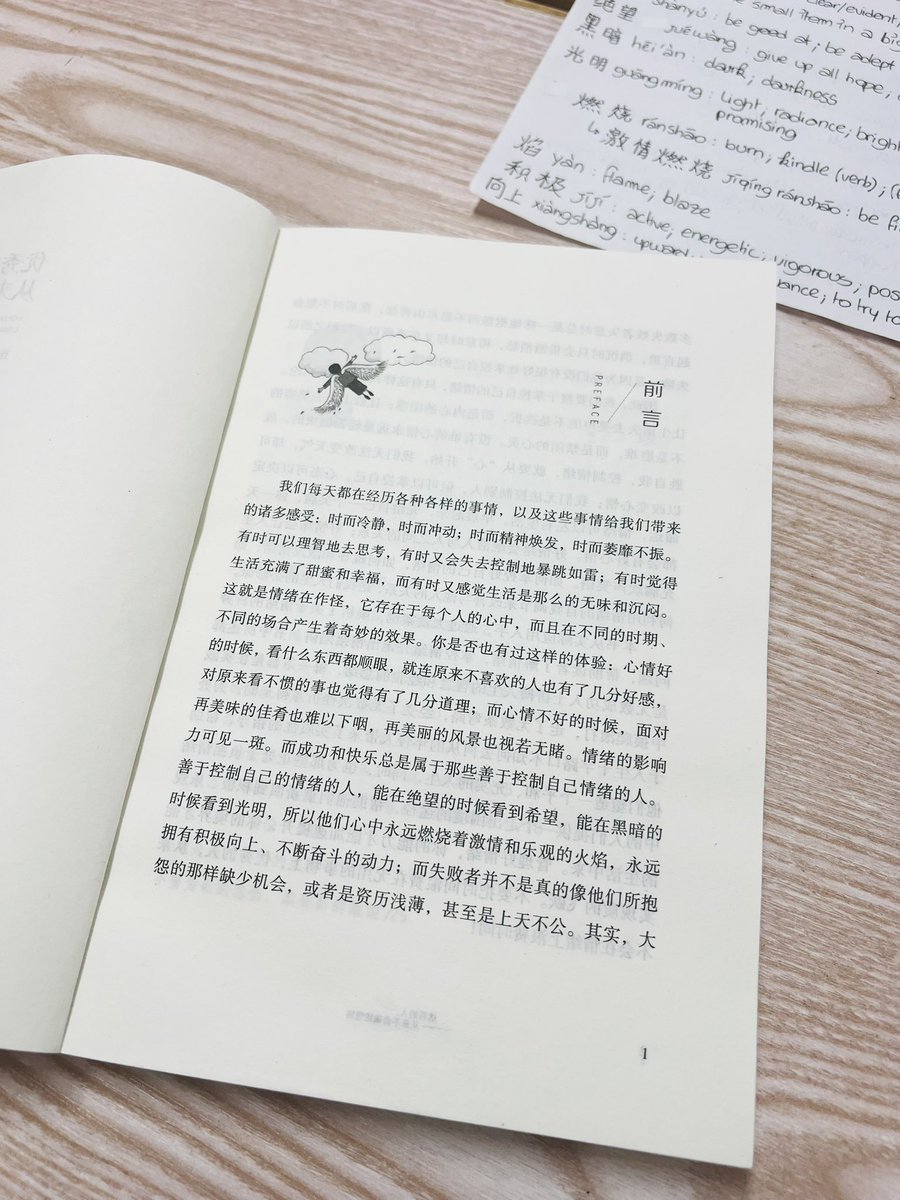 clear/evident,
small item in a
shànyú : be good at; be adept
绝望 juéwàng : give up all hope;
黑暗 hēi'àn : dark; darkness
光明 guāngmíng : light; radiance; bright
promising
燃烧 ránshāo : burn; kindle (verb);
↳ 激情燃烧 jīqíng ránshāo : be
焰 yàn : flame; blaze
积极 jījí : active; energetic; vigorous;
向上 xiàngshàng : upward
to try to
前言
PREFACE
我们每天都在经历各种各样的事情，以及这些事情给我们带来
的诸多感受：时而冷静，时而冲动；时而精神焕发，时而萎靡不振。
有时可以理智地去思考，有时又会失去控制地暴跳如雷；有时觉得
生活充满了甜蜜和幸福，而有时又感觉生活是那么的无味和沉闷。
这就是情绪在作怪，它存在于每个人的心中，而且在不同的时期、
不同的场合产生着奇妙的效果。你是否也有过这样的体验：心情好
的时候，看什么东西都顺眼，就连原来不喜欢的人也有了几分好感，
对原来看不惯的事也觉得有了几分道理；而心情不好的时候，面对
再美味的佳肴也难以下咽，再美丽的风景也视若无睹。情绪的影响
力可见一斑。而成功和快乐总是属于那些善于控制自己情绪的人。
善于控制自己的情绪的人，能在绝望的时候看到希望，能在黑暗的
时候看到光明，所以他们心中永远燃烧着激情和乐观的火焰，永远
拥有积极向上、不断奋斗的动力；而失败者并不是真的像他们所抱
怨的那样缺少机会，或者是资历浅薄，甚至是上天不公。其实，大
1